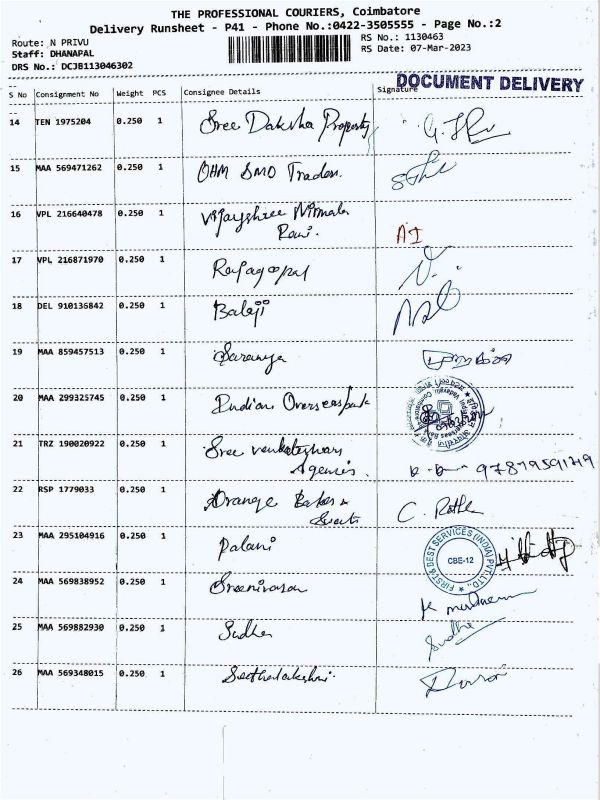 THE PROFESSIONAL COURIERS, Coimbatore
Delivery Runsheet - P41 - Phone No.:0422-3505555 - Page No.:2
Route: N PRIVU
RS No.: 1130463
Staff: DHANAPAL
RS Date: 07-Mar-2023
DRS No.: DCJB113046302
DOCUMENT DELIVERY
S No Consignment No Weight PCS Consignee Details Signature
14 TEN 1975204 0.250 1 Sree Daksha Property
15 MAA 569471262 0.250 1 OHM SMO Traders
16 VPL 216640478 0.250 1 Vijayshree Nirmala
Rani. AI
17 VPL 216871970 0.250 1 Rajagopal
18 DEL 910136842 0.250 1 Balaji
19 MAA 859457513 0.250 1 Saranya
20 MAA 299325745 0.250 1 Indian Overseas
21 TRZ 190020922 0.250 1 Sree Venkateshwara
Agencies.
22 RSP 1779033 0.250 1 Orange Bakes &
Sweets C.
23 MAA 295104916 0.250 1 Palani
FIRST & BEST SERVICES (INDIA) PVT.LTD.,
CBE-12
24 MAA 569838952 0.250 1 Sreenivasan
25 MAA 569882930 0.250 1 Sudha Sudha
26 MAA 569348015 0.250 1 Seethalakshmi.